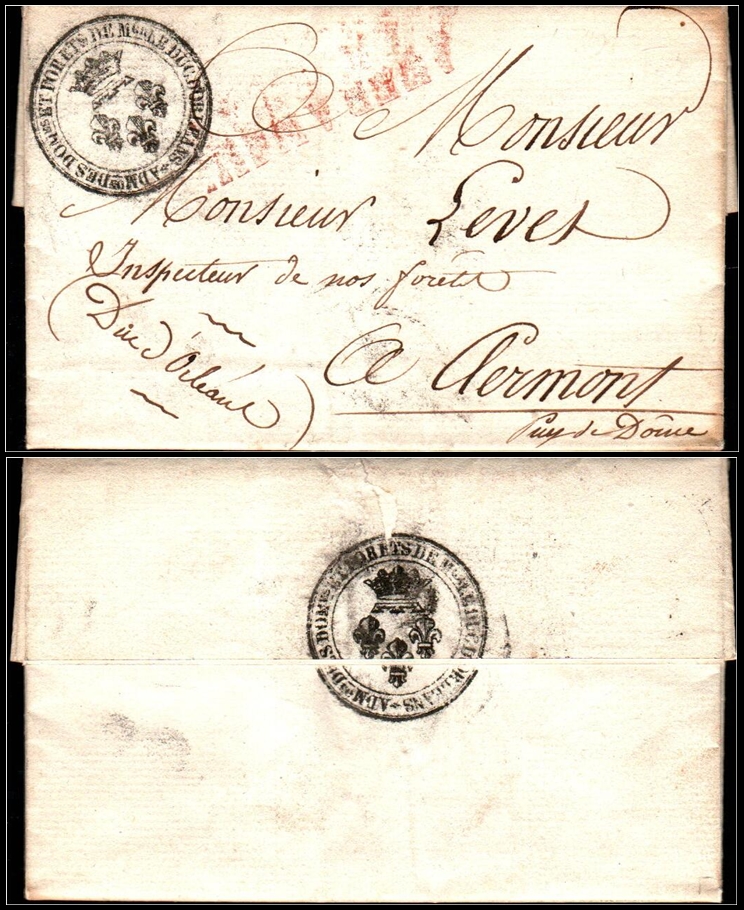 ADMON DES DOMES ET FORETS DE MGR LE DUC D'ORLEANS
Monsieur
Monsieur Levet
Inspecteur de nos forêts
(Duc d'Orléans)
A Clermont
Puy de Dôme
ADMON DES DOMES ET FORETS DE MGR LE DUC D'ORLEANS